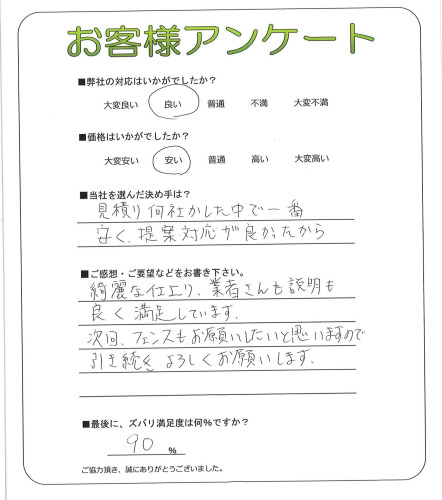 お客様アンケート
■弊社の対応はいかがでしたか？
大変良い 良い 普通 不満 大変不満
■価格はいかがでしたか？
大変安い 安い 普通 高い 大変高い
■当社を選んだ決め手は？
見積り何社かした中で一番
安く、提案対応が良かったから
■ご感想・ご要望などをお書き下さい。
綺麗な仕上り、業者さんも説明も
良く満足しています。
次回、フェンスもお願いしたいと思いますので
引き続き よろしくお願いします。
■最後に、ズバリ満足度は何%ですか？
90 %
ご協力頂き、誠にありがとうございました。